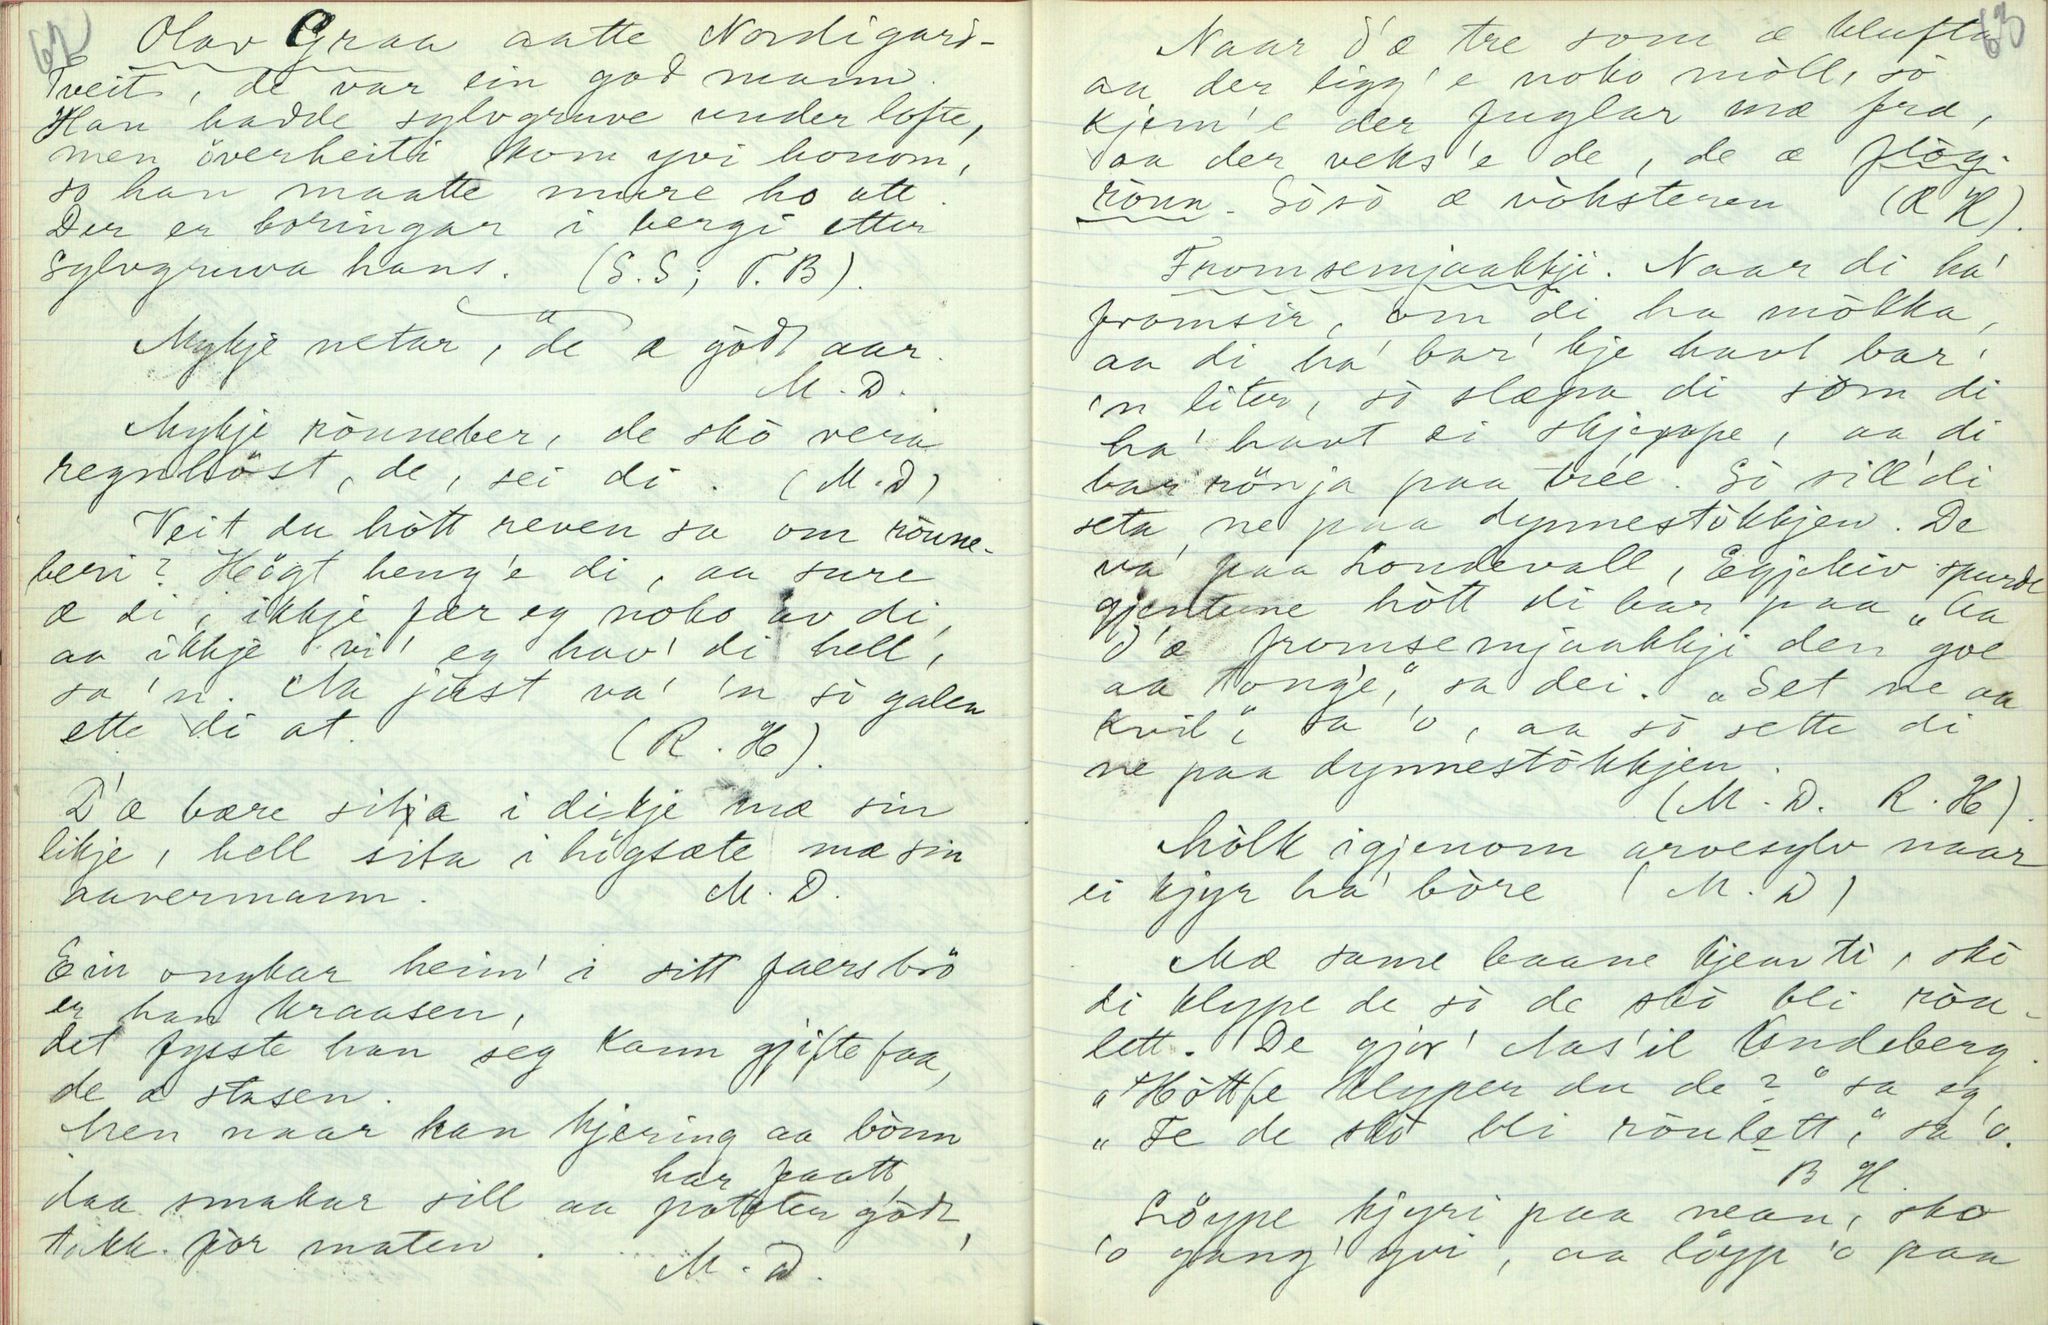 62
Olav Graa aatte Nordigard-
Tveit, de var ein god mann.
Han hadde sylvgruve under lofte,
men överheiti kom yvi honom,
so han maatte mure ho att.
Der er boringar i bergi etter
sylvgruva hans. (S.S; T.B).
Mykje netar, de æ gòdt aar.
M.D.
Mykje rònneber, de skò vera
regnhöst, de, sei di. (M.D)
Veit du hòtt reven sa om rònne-
beri? Högt heng'e di, aa sure
æ di, ikkje fær eg noko av di,
aa ikkje vi' eg hav' di hell,
sa 'n. Aa jüst va' 'n sò galen
ette di at. (R.H).
D'æ bære sitja i dikje mæ sin
likje, hell sita i högsæte mæ sin
aavermann. M.D.
Ein ongkar heim' i sitt faersbrö
er han kraasen,
det fysste han seg kann gjifte faa,
de æ stasen.
Men naar han kjering aa bònn
har faatt,
daa smakar sill aa poteter gòdt,
takk fòr maten. M.D.
63
Naar d'æ tre som æ klufta
aa der ligg'e noko mòll, sò
kjem'e der fuglar mæ frø,
aa der veks'e de, de æ flòg-
rònn. Sòsò æ vòksteren (R H).
Fromsemjaakkji. Naar di ha'
fromsir, om di ha mòlka,
aa di ha' bar' kje havt bar'
'n liter, sò slæpa di sòm di
ha' havt ei skjeppe, aa di
bar rönja paa tree. Sò sill' di
seta ne paa dynnestòkkjen. De
va' paa Londevall, Egjeliv spurde
gjentune hòtt di bar paa. „Aa
d'æ fromsemjaakkji den goe
aa tong'e," sa dei. „Set ne aa
kvil", sa 'o, aa sò sette di
ne paa dynnestòkkjen.
(M.D. R.H).
Mòlk igjenom arvesylv naar
ei kjyr ha' bòre (M.D)
Mæ same baane kjem ti, skò
di klype de sò de skò bli ròn-
lett. De gjor' Aas'il Undeberg.
„Hòttfe klyper du de?" sa eg,
„Fe de skò bli rònlett," sa 'o.
B H.
Löype kjyri paa nean, sko
'o gang' yvi, aa löyp 'o paa